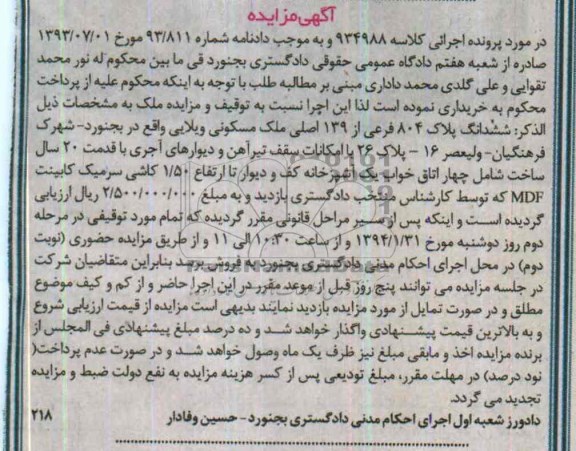 آگهی مزایده
در مورد پرونده اجرائی کلاسه ۹۳۴۹۸۸ و به موجب دادنامه شماره ۹۳/۸۱۱ مورخ ۱۳۹۳/۰۷/۰۱
صادره از شعبه هفتم دادگاه عمومی حقوقی دادگستری بجنورد قی ما بین محکوم له نور محمد
تقوایی و علی گلدی محمد داداری مبنی بر مطالبه طلب با توجه به اینکه محکوم علیه از پرداخت
محکوم به خریداری نموده است لذا این اجرا نسبت به توقیف و مزایده ملک به مشخصات ذیل
الذکر: ششدانگ پلاک ۸۰۴ فرعی از ۱۳۹ اصلی ملک مسکونی ویلایی واقع در بجنورد- شهرک
فرهنگیان- ولیعصر ۱۶ - پلاک ۲۶ با امکانات سقف تیرآهن و دیوارهای آجری با قدمت ۲۰ سال
ساخت شامل چهار اتاق خواب یک آشپزخانه کف و دیوار تا ارتفاع ۱/۵۰ کاشی سرمیک کابینت
MDF که توسط کارشناس منتخب دادگستری بازدید و به مبلغ ۲/۵۰۰/۰۰۰/۰۰۰ ریال ارزیابی
گردیده است و اینکه پس از مسیر مراحل قانونی مقرر گردیده که تمام مورد توقیفی در مرحله
دوم روز دوشنبه مورخ ۱۳۹۴/۱/۳۱ و از ساعت ۱۰:۳۰ الی ۱۱ و از طریق مزایده حضوری (نوبت
دوم) در محل اجرای احکام مدنی دادگستری بجنورد به فروش برسد بنابراین متقاضیان شرکت
در جلسه مزایده می توانند پنج روز قبل از موعد مقرر در این اجرا حاضر و از کم و کیف موضوع
مطلق و در صورت تمایل از مورد مزایده بازدید نمایند بدیهی است مزایده از قیمت ارزیابی شروع
و به بالاترین قیمت پیشنهادی واگذار خواهد شد و ده درصد مبلغ پیشنهادی فی المجلس از
برنده مزایده اخذ و مابقی مبلغ نیز ظرف یک ماه وصول خواهد شد و در صورت عدم پرداخت(
نود درصد) در مهلت مقرر، مبلغ تودیعی پس از کسر هزینه مزایده به نفع دولت ضبط و مزایده
تجدید می گردد.
دادورز شعبه اول اجرای احکام مدنی دادگستری بجنورد- حسین وفادار ۲۱۸